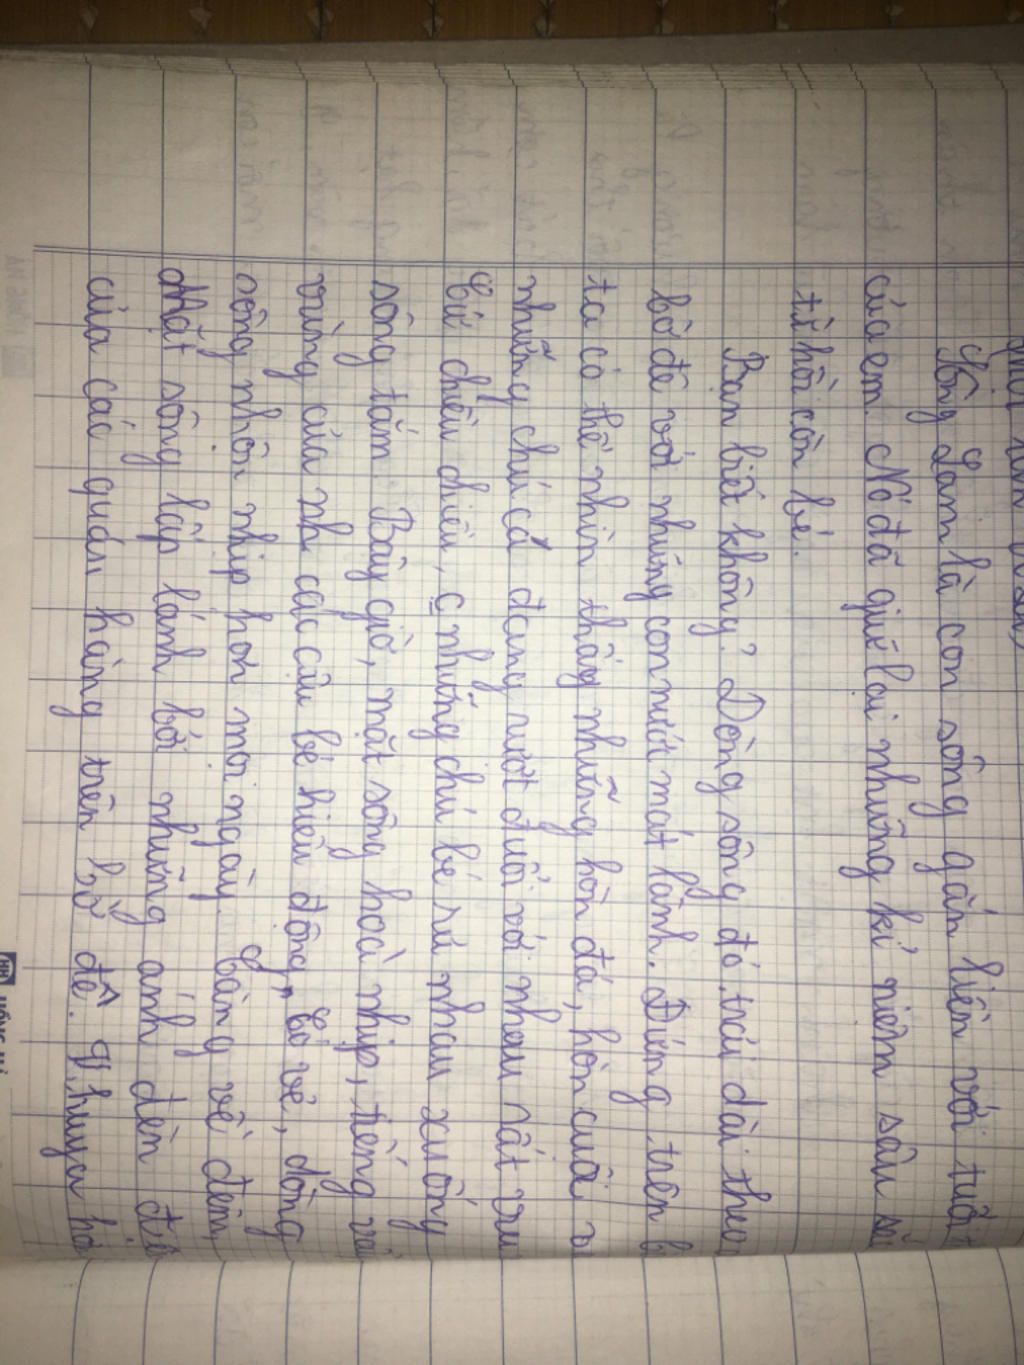 Sông Lam là con sông gắn liền với tuổi
của em. Nó đã giữ lại những kỉ niệm sâu
từ hồi còn bé.
Bạn biết không? Dòng sông đó trải dài theo
bờ đê với những con nước mát lành. Đứng trên
ta có thể nhìn thấy những hòn đá, hòn cuội
những chú cá đang rượt đuổi với nhau rất vui
Cứ chiều chiều, những chú bé rủ nhau xuống
sông tắm. Bây giờ, mặt sông hoà nhịp, tiếng
vùng của nh các cậu bé hiếu động, dòng
sông nhộn nhịp hơn mọi ngày. Càng về đêm,
Mặt sông lấp lánh bởi những ánh đèn
của các quán hàng trên bờ đê.